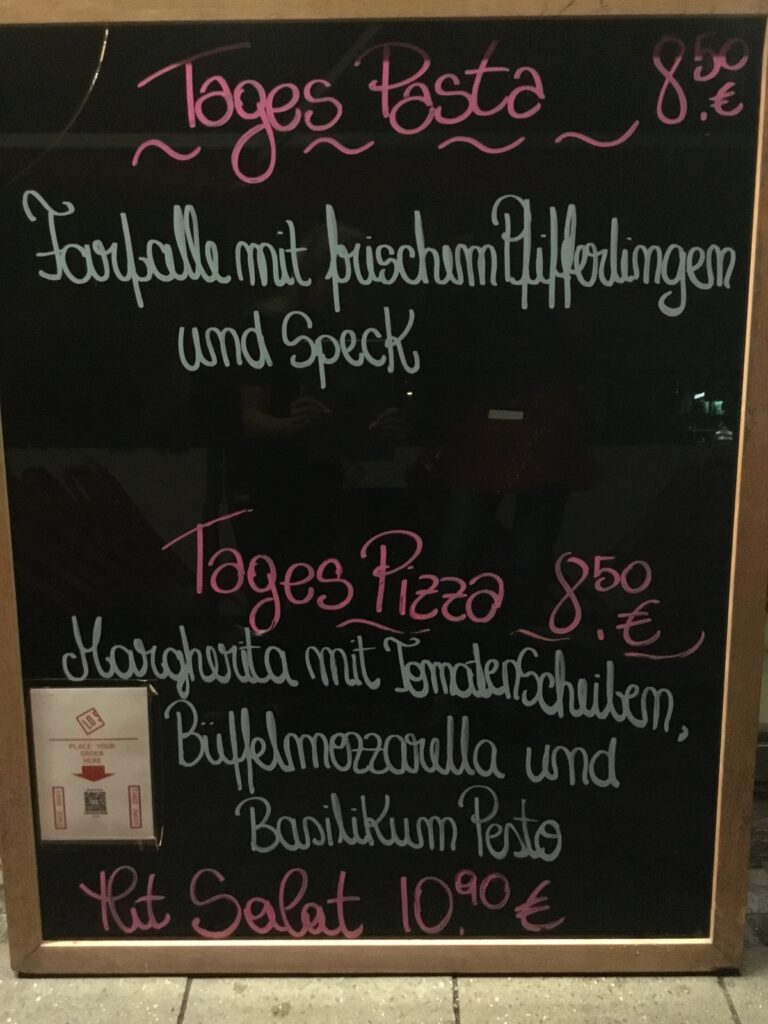 Tages Pasta 8.50 €
Farfalle mit frischem Pfifferlingen
und Speck
Tages Pizza 8.50 €
Margherita mit TomatenScheiben,
Büffelmozzarella und
Basilikum Pesto
Mit Salat 10.90 €
PLACE YOUR
ORDER
HERE